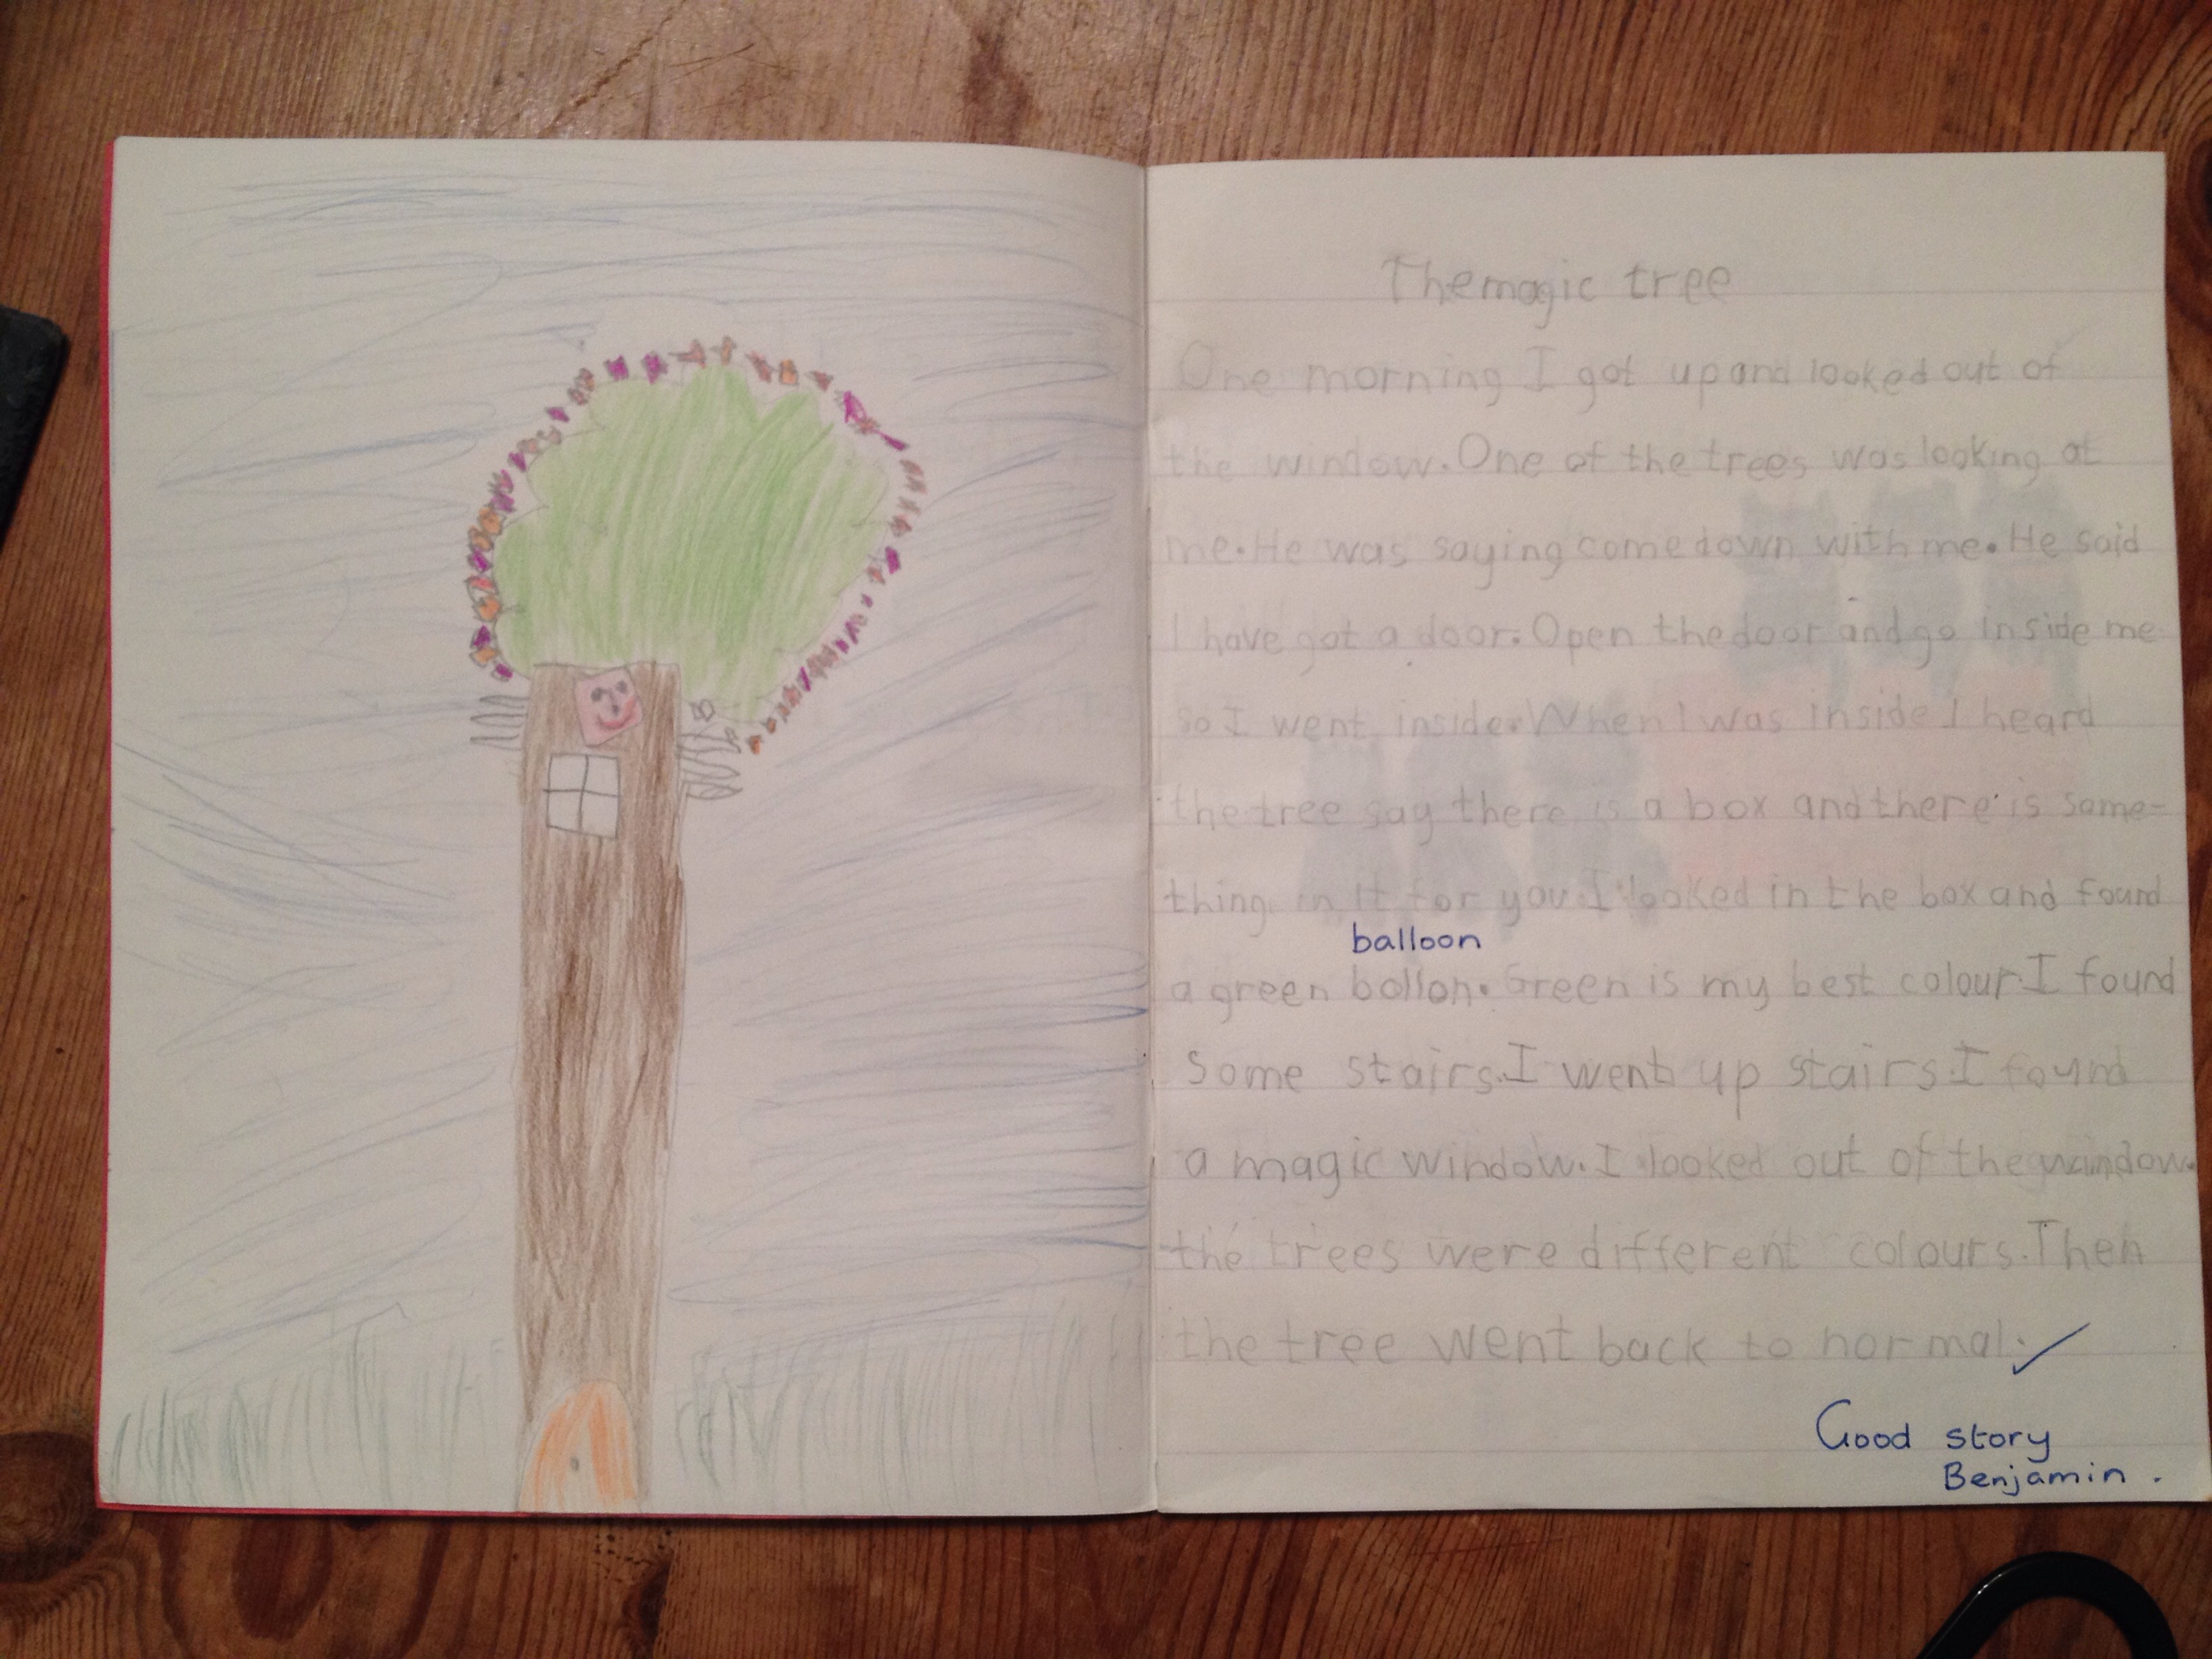 The magic tree
One morning I got up and looked out of
the window. One of the trees was looking at
me. He was saying come down with me. He said
I have got a door. Open the door and go inside me
so I went inside. When I was inside I heard
the tree say there is a box and there is some-
thing in it for you. I looked in the box and found
balloon
a green bollon. Green is my best colour. I found
some stairs. I went up stairs. I found
a magic window. I looked out of the window.
the trees were different colours. Then
the tree went back to normal.
Good story
Benjamin.